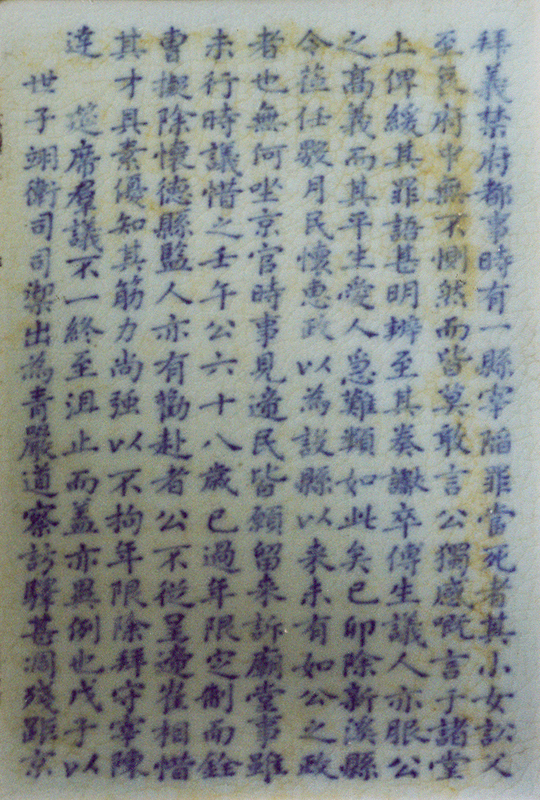 拜義禁府都事時有一縣宰陷罪當死者其小女訟父
至冤府中無不惻然而皆莫敢言公獨感慨言于諸堂
上俾緩其罪語甚明辨至其奏讞卒傅生議人亦服公
之高義而其平生愛人急難類如此矣己卯除新溪縣
令莅任數月民懷惠政以為設縣以来未有如公之政
者也無何坐京官時事見遞民皆願留来訴廟堂事雖
未行時議惜之壬午公六十八歲已過年限定制而銓
曹擬除懷德縣監人亦有勸赴者公不從呈遞崔相惜
其才具素優知其筋力尚强以不拘年限除拜守宰陳
達 筵席羣議不一終至沮止而盖亦異例也戊子以
世子翊衛司司禦出為青巖道察訪驛甚凋殘距京